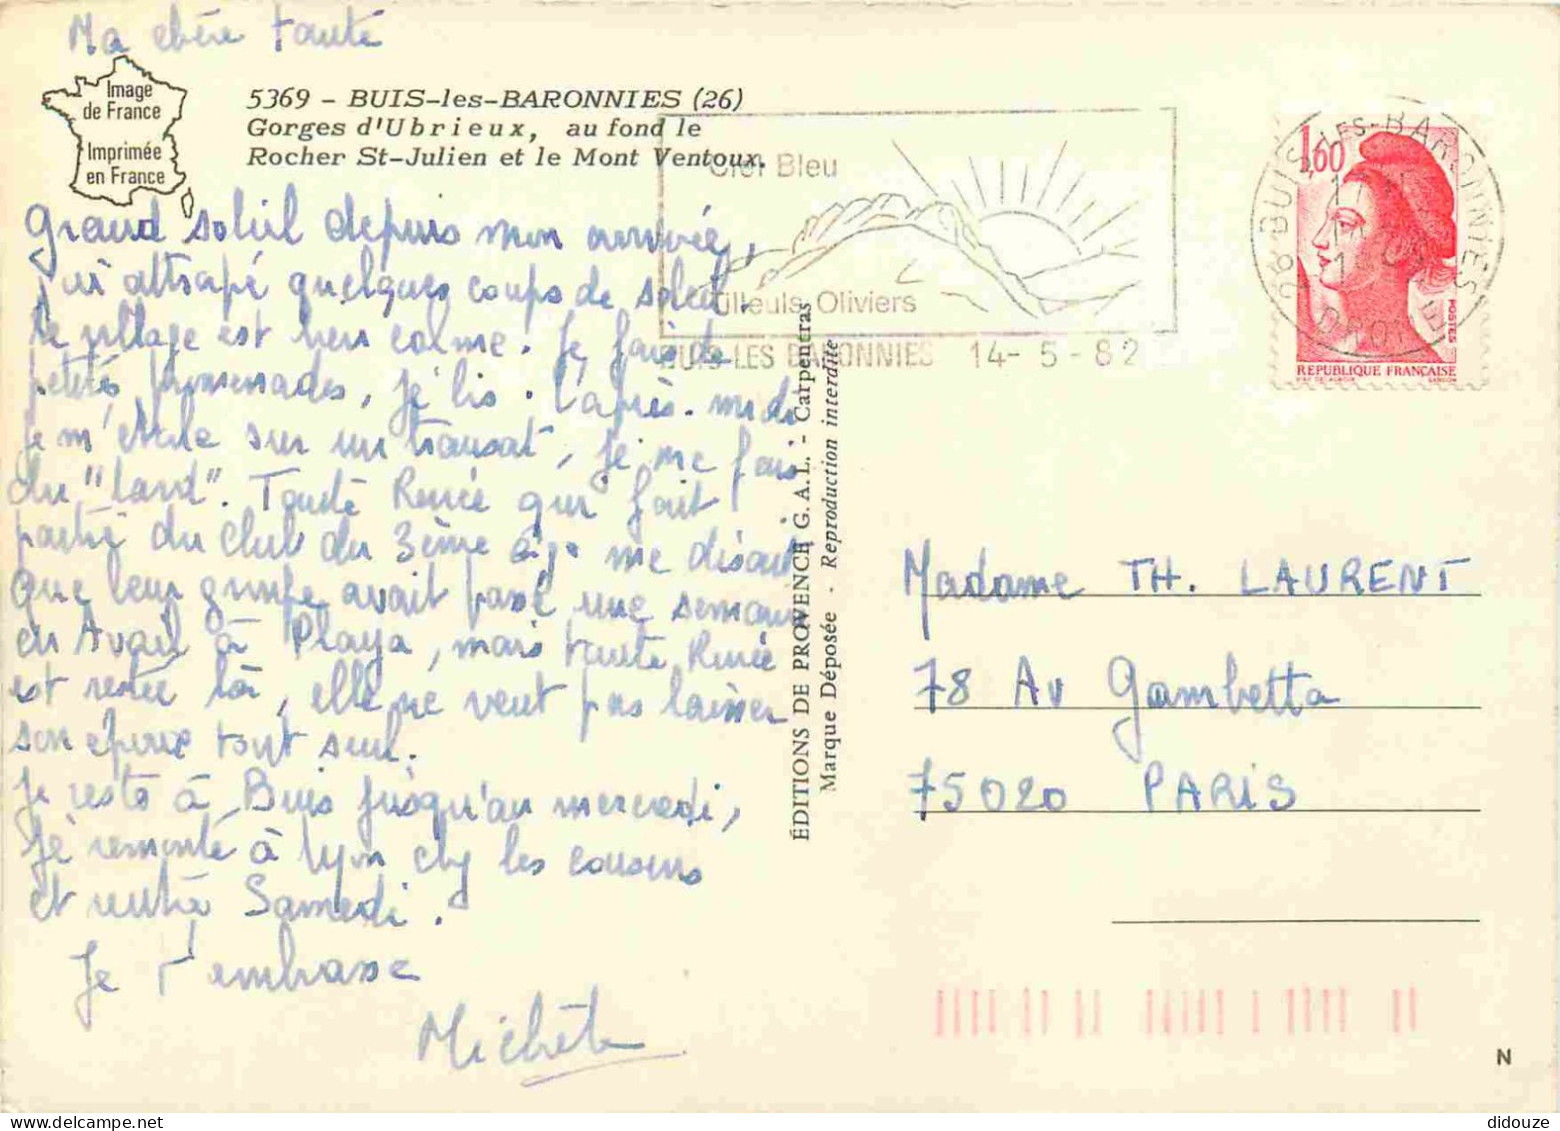 Ma chère tante
Image
de France
Imprimée
en France
5369 - BUIS-les-BARONNIES (26)
Gorges d'Ubrieux, au fond le
Rocher St-Julien et le Mont Ventoux.
Ciel Bleu
Tilleuls Oliviers
BUIS-LES BARONNIES 14-5-82
26 BUIS-LES-BARONNIES
DROME
1,60
POSTES
REPUBLIQUE FRANÇAISE
Grand soleil depuis mon arrivée,
j'ai attrapé quelques coups de soleil.
Le village est bien calme. Je fais de
petites promenades, je lis. L'après-midi
je m'étale sur un transat, je me fais
du "lard". Tante Renée qui fait
partie du club du 3ème âge me disait
que leur groupe avait passé une semaine
en Avril à Playa, mais tante Renée
est restée là, elle ne veut pas laisser
son époux tout seul.
Je reste à Buis jusqu'au mercredi,
je remonte à Lyon chz les cousins
et rentre Samedi.
Je t'embrasse
Michèle
ÉDITIONS DE PROVENCE G.A.L. - Carpentras
Marque Déposée - Reproduction interdite
Madame TH. LAURENT
78 Av Gambetta
75020 PARIS
N
didouze